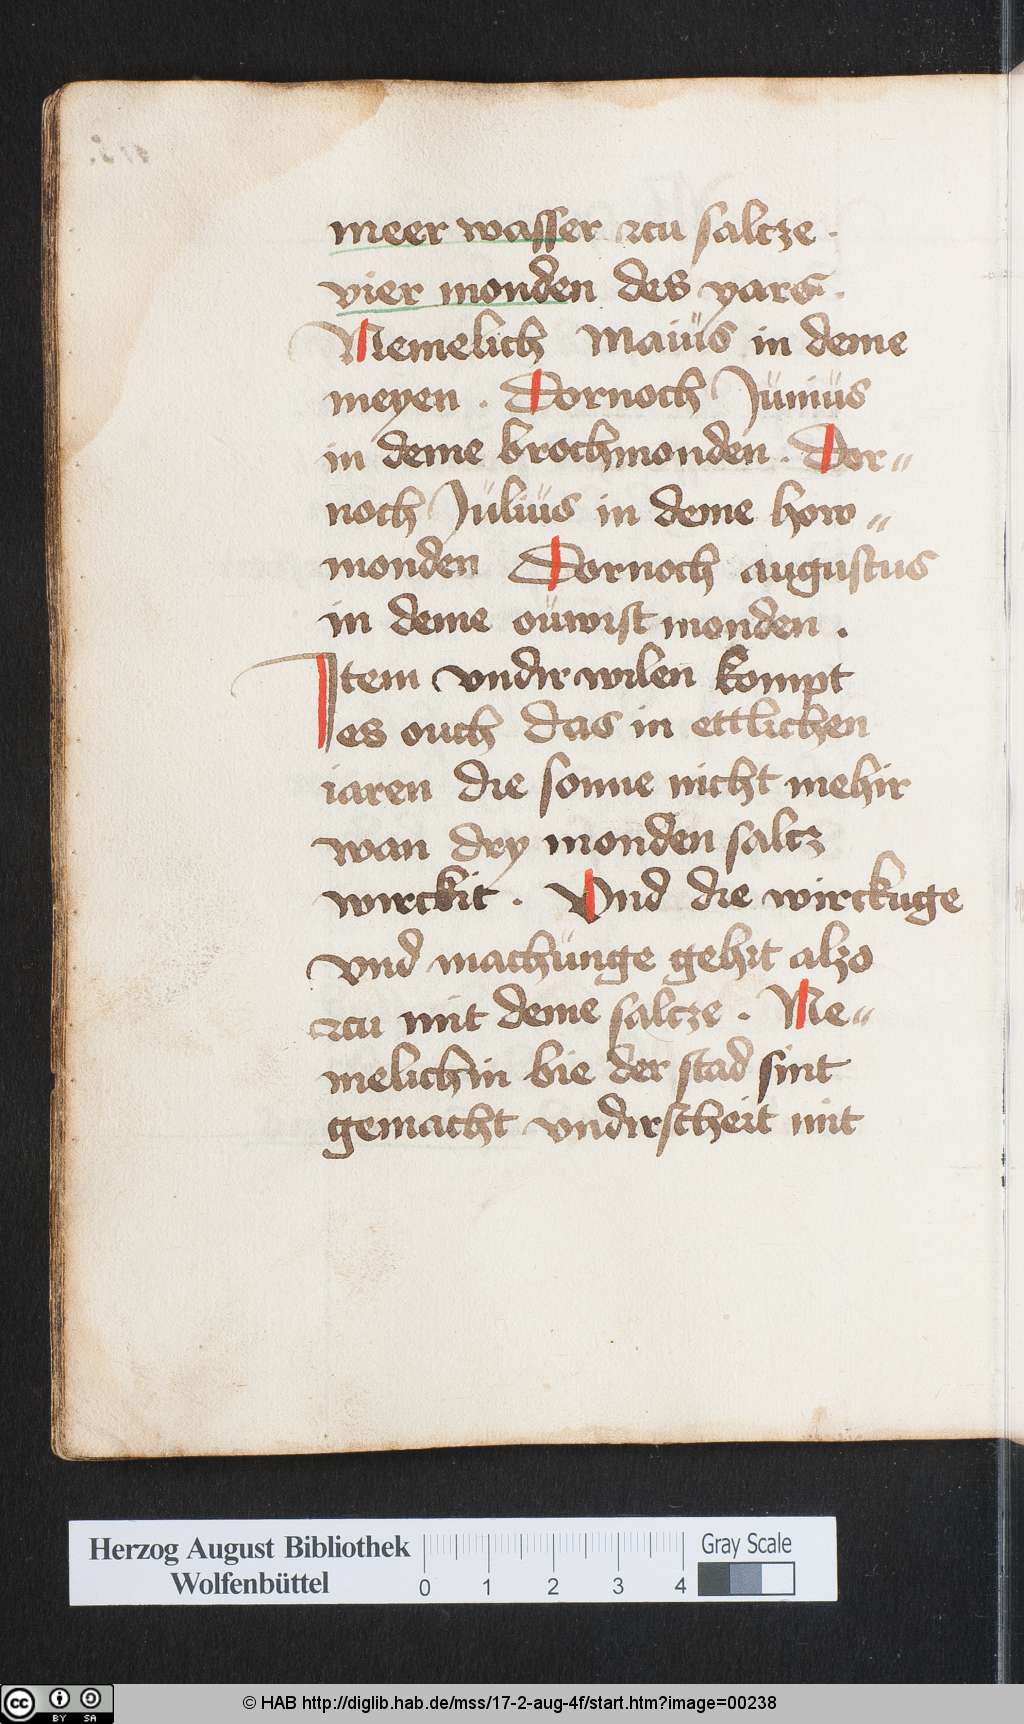 meer wasser zcu saltze .
vier monden des yars .
Nemelich Maiüs in deme
meyen . Dornoch Jüniüs
in deme brochmonden . Dor„
noch Jüliüs in deme how„
monden Dornoch augustus
in deme oüwist monden .
Item vndir wilen kompt
es ouch das in ettlichen
iaren die sonne nicht mehir
wan dry monden saltz
wirckit . Vnd die wirckuge
vnd machünge gehit alzo
zcu mit deme saltze . Ne„
melichin bie der stad sint
gemacht vndirscheit mit
Herzog August Bibliothek
Wolfenbüttel
0 1 2 3 4
Gray Scale
cc BY SA
© HAB http://diglib.hab.de/mss/17-2-aug-4f/start.htm?image=00238